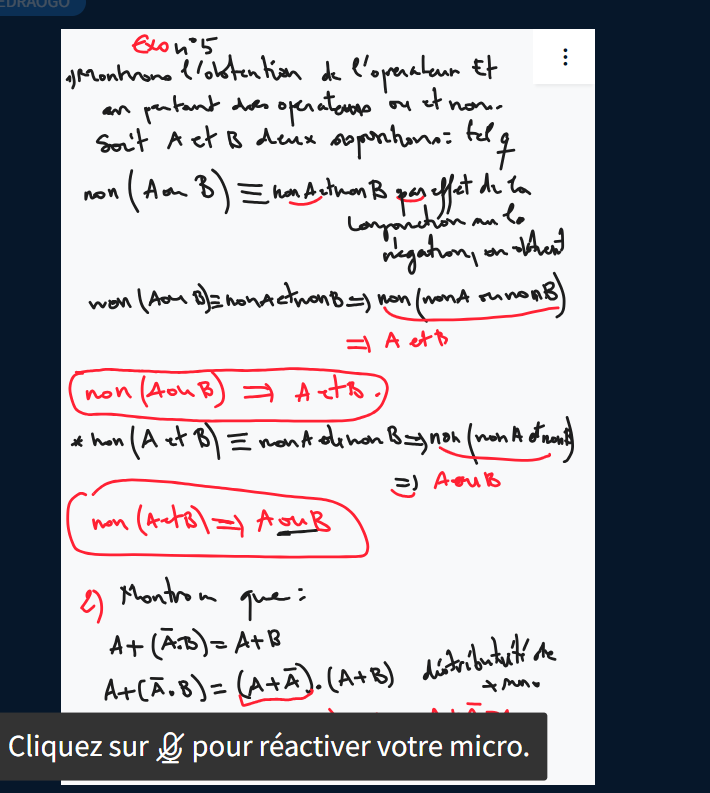 EDRAOGO
Exo n°5
1) Montrons l'obtention de l'operateur Et
en partant des operateurs ou et non.
Soit A et B deux propositions tel q
non (A ou B) ≡ non A et non B par effet de la
conjonction sur la
négation, on obtient
non (A ou B) ≡ non A et non B ⇒ non (non A ou non B)
⇒ A et B
non (A ou B) ⇒ A et B.
* non (A et B) ≡ non A ou non B ⇒ non (non A et non B)
⇒ A ou B
non (A et B) ⇒ A ou B
2) Montron que :
A + (Ā.B) = A + B
A + (Ā . B) = (A + Ā) . (A + B) distributivité de
+ sur .
Cliquez sur pour réactiver votre micro.